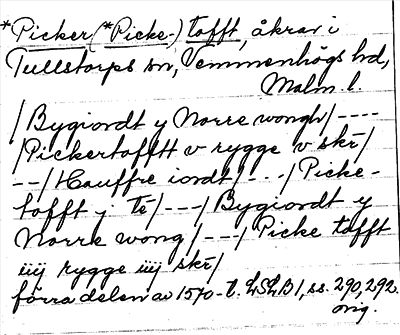 *Picker (*Picke-) tofft, åkrar i
Tullstorps sn, Vemmenhögs hd,
Malm. l.
/Bygiordt y Norre wongh/----
/Pickertofftt v rygge v skr/
--/Hauffre iordt/---/Picke-
tofft y té/---/Bygiordt y
Norre wong/---/Picke tofft
iiij rygge iiij skr/
förra delen av 1570-t. LSLB1, ss. 290, 292.
orig.